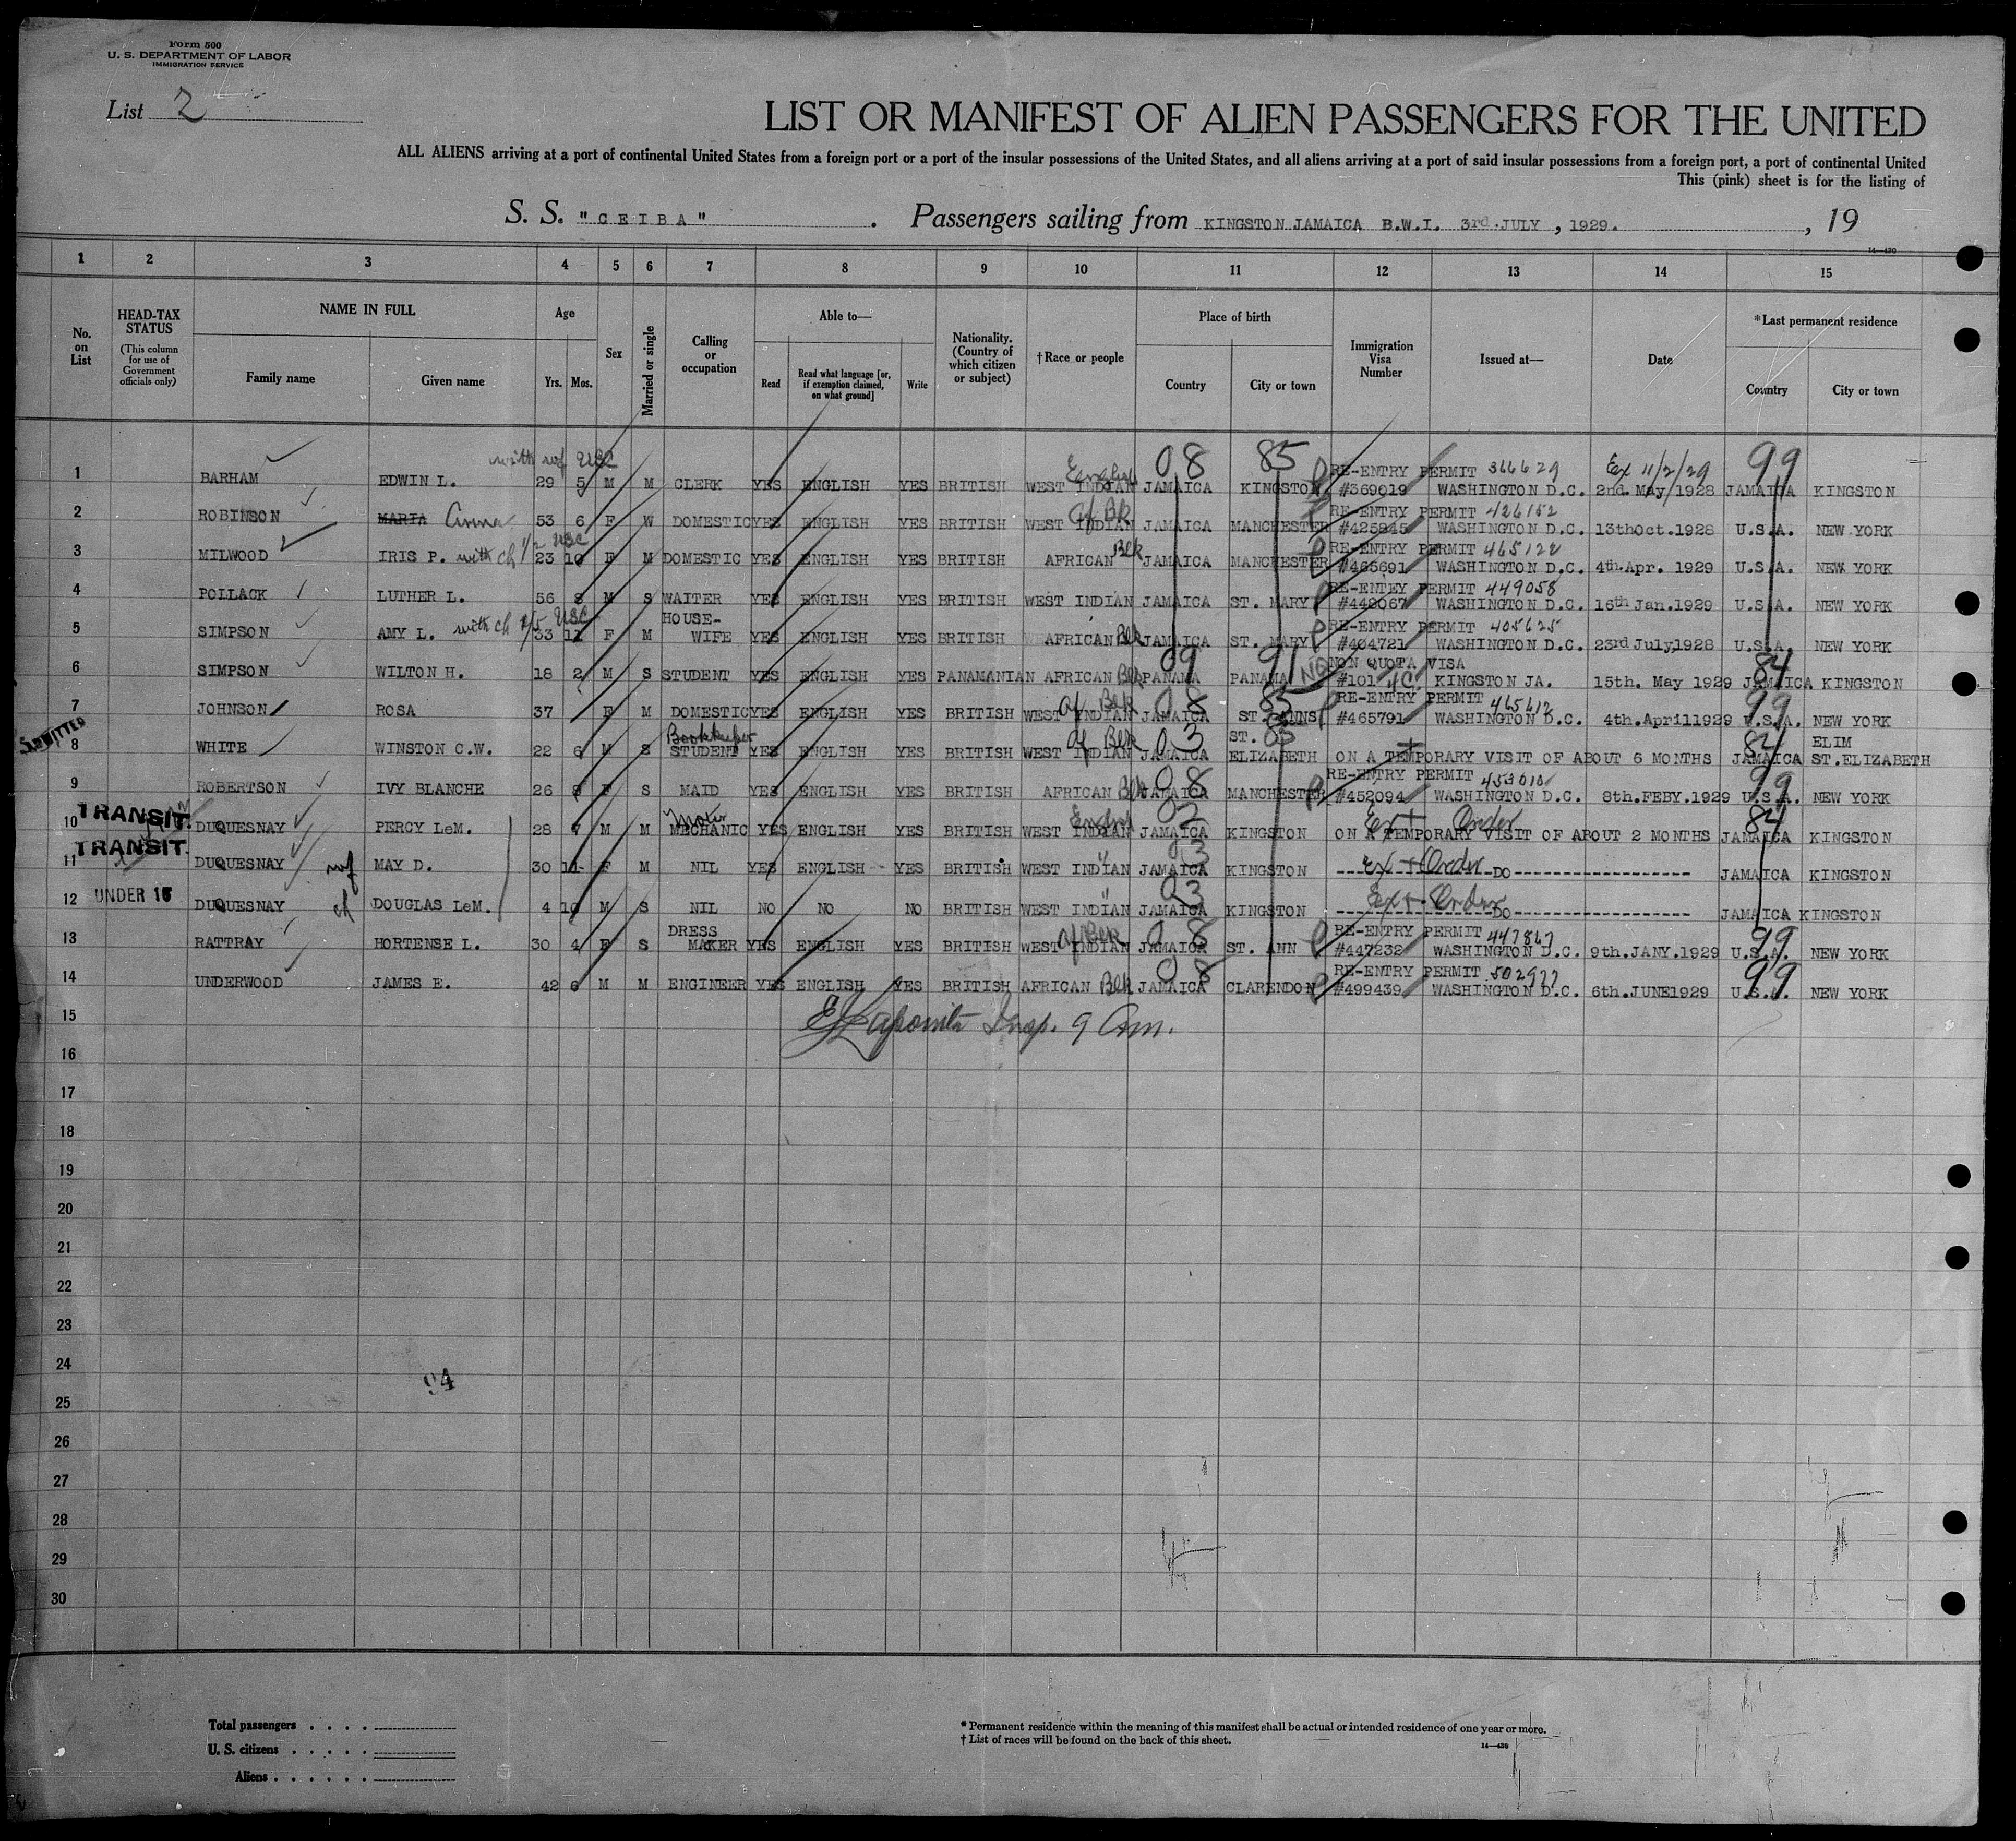 Form 500
U. S. DEPARTMENT OF LABOR
IMMIGRATION SERVICE
List 2
LIST OR MANIFEST OF ALIEN PASSENGERS FOR THE UNITED
ALL ALIENS arriving at a port of continental United States from a foreign port or a port of the insular possessions of the United States, and all aliens arriving at a port of said insular possessions from a foreign port, a port of continental United
This (pink) sheet is for the listing of
S. S. "CEIBA" . Passengers sailing from KINGSTON JAMAICA B.W.I. 3rd.JULY , 1929. , 19
14—430
1 2 3 4 5 6 7 8 9 10 11 12 13 14 15
No. on List
HEAD-TAX STATUS (This column for use of Government officials only)
NAME IN FULL
Family name Given name
Age
Yrs. Mos.
Sex
Married or single
Calling or occupation
Able to—
Read Read what language [or, if exemption claimed, on what ground] Write
Nationality. (Country of which citizen or subject)
†Race or people
Place of birth
Country City or town
Immigration Visa Number
Issued at—
Date
*Last permanent residence
Country City or town
with wf USC English 08 85 RE-ENTRY PERMIT 366629 Ex 11/2/29 99
1 BARHAM EDWIN L. 29 5 M M CLERK YES ENGLISH YES BRITISH WEST INDIAN JAMAICA KINGSTON #369019 WASHINGTON D.C. 2nd. May 1928 JAMAICA KINGSTON
Af Blk RE-ENTRY PERMIT 426152
2 ROBINSON MARIA Anna 53 6 F W DOMESTIC YES ENGLISH YES BRITISH WEST INDIAN JAMAICA MANCHESTER #425845 WASHINGTON D.C. 13th Oct.1928 U.S.A. NEW YORK
RE-ENTRY PERMIT 465122
3 MILWOOD IRIS P. with ch 1/2 USC 23 10 F M DOMESTIC YES ENGLISH YES BRITISH AFRICAN Blk JAMAICA MANCHESTER #465691 WASHINGTON D.C. 4th.Apr. 1929 U.S.A. NEW YORK
RE-ENTEY PERMIT 449058
4 POLLACK LUTHER L. 56 8 M S WAITER YES ENGLISH YES BRITISH WEST INDIAN JAMAICA ST. MARY #448067 WASHINGTON D.C. 16th Jan.1929 U.S.A. NEW YORK
RE-ENTRY PERMIT 405625
5 SIMPSON AMY L. with ch USC 33 11 F M HOUSE-WIFE YES ENGLISH YES BRITISH AFRICAN Blk JAMAICA ST. MARY #404721 WASHINGTON D.C. 23rd July1928 U.S.A. NEW YORK
09 91 NON QUOTA VISA 84
6 SIMPSON WILTON H. 18 2 M S STUDENT YES ENGLISH YES PANAMANIAN AFRICAN Blk PANAMA PANAMA #101 4C KINGSTON JA. 15th. May 1929 JAMAICA KINGSTON
Af Blk 08 85 RE-ENTRY PERMIT 465612 99
7 JOHNSON ROSA 37 F M DOMESTIC YES ENGLISH YES BRITISH WEST INDIAN JAMAICA ST. ANNS #465791 WASHINGTON D.C. 4th.April1929 U.S.A. NEW YORK
ADMITTED Bookkeeper Af Blk 03 ST. 85 84 ELIM
8 WHITE WINSTON C.W. 22 6 M S STUDENT YES ENGLISH YES BRITISH WEST INDIAN JAMAICA ELIZABETH ON A TEMPORARY VISIT OF ABOUT 6 MONTHS JAMAICA ST.ELIZABETH
08 RE-ENTRY PERMIT 453010 99
9 ROBERTSON IVY BLANCHE 26 8 F S MAID YES ENGLISH YES BRITISH AFRICAN Blk JAMAICA MANCHESTER #452094 WASHINGTON D.C. 8th.FEBY.1929 U.S.A. NEW YORK
TRANSIT. Motor English 03 Ex + Order 84
10 DUQUESNAY PERCY LeM. 28 7 M M MECHANIC YES ENGLISH YES BRITISH WEST INDIAN JAMAICA KINGSTON ON A TEMPORARY VISIT OF ABOUT 2 MONTHS JAMAICA KINGSTON
TRANSIT. " 03 Ex + Order
11 DUQUESNAY wf MAY D. 30 11 F M NIL YES ENGLISH YES BRITISH WEST INDIAN JAMAICA KINGSTON ----DO---- JAMAICA KINGSTON
UNDER 16 " 03 Ex + Order
12 DUQUESNAY ch DOUGLAS LeM. 4 10 M S NIL NO NO NO BRITISH WEST INDIAN JAMAICA KINGSTON ----DO---- JAMAICA KINGSTON
Af Blk 08 RE-ENTRY PERMIT 447867 99
13 RATTRAY HORTENSE L. 30 4 F S DRESS MAKER YES ENGLISH YES BRITISH WEST INDIAN JAMAICA ST. ANN #447232 WASHINGTON D.C. 9th.JANY.1929 U.S.A. NEW YORK
08 RE-ENTRY PERMIT 502977 99
14 UNDERWOOD JAMES E. 42 6 M M ENGINEER YES ENGLISH YES BRITISH AFRICAN Blk JAMAICA CLARENDON #499439 WASHINGTON D.C. 6th.JUNE1929 U.S.A. NEW YORK
15 Insp. 9 Am.
16
17
18
19
20
21
22
23
24
94
25
26
27
28
29
30
Total passengers
U. S. citizens
Aliens
* Permanent residence within the meaning of this manifest shall be actual or intended residence of one year or more.
† List of races will be found on the back of this sheet.
14—430